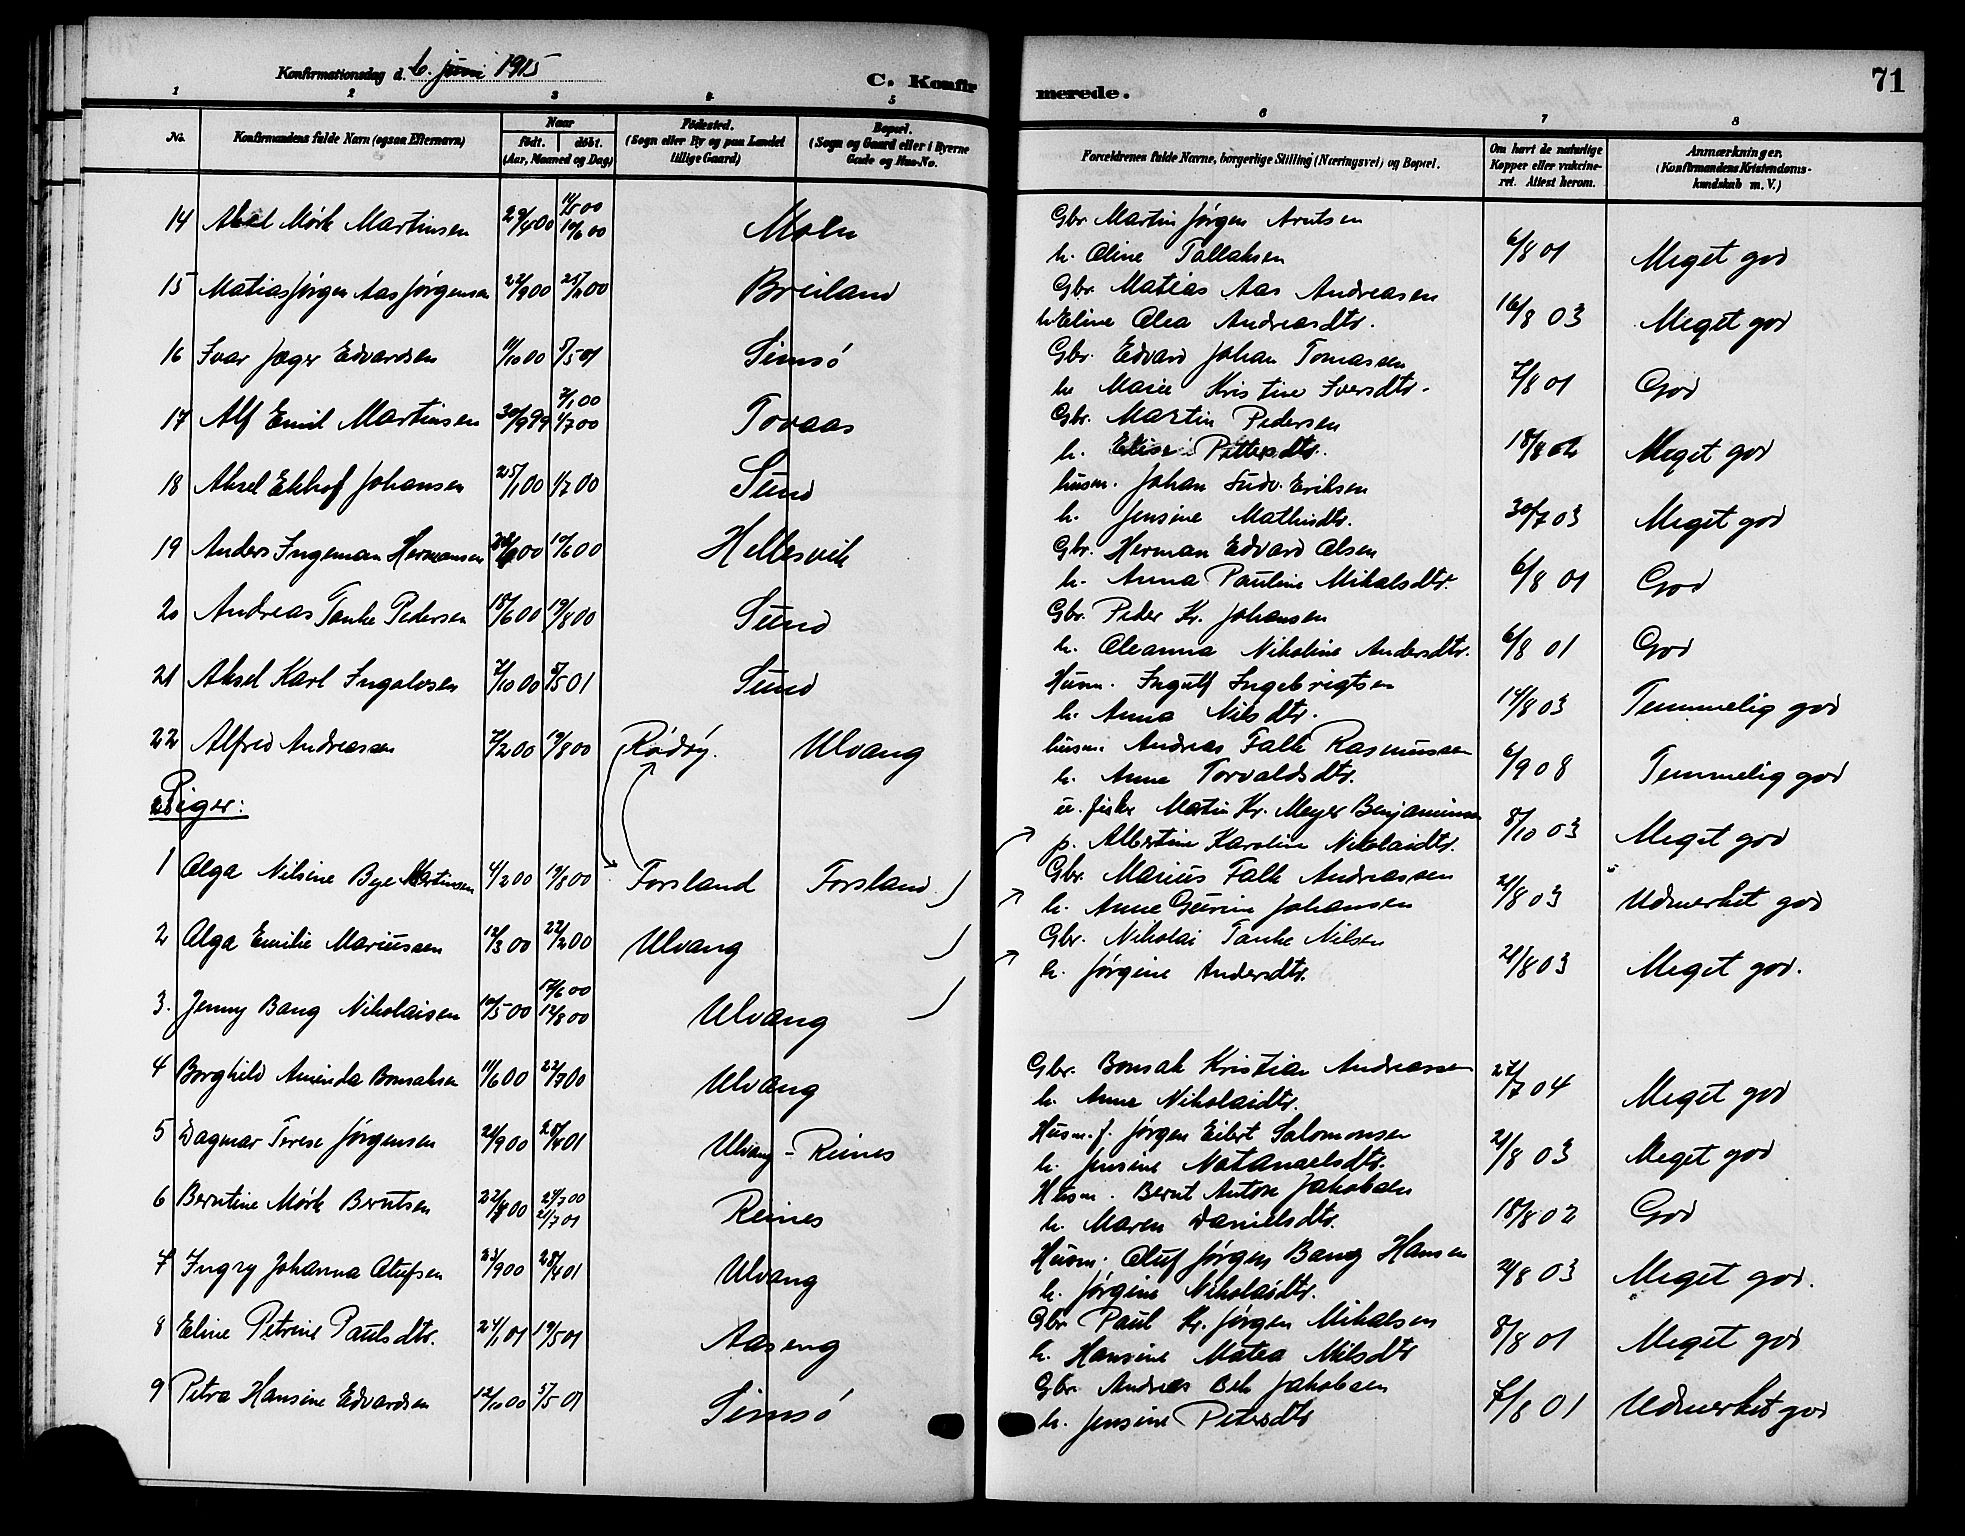 Konfirmationsdag d. 6. juni 1915
C. Konfir
merede.
71
1 2 3 4 5 6 7 8
No. Konfirmandens fulde Navn (ogsaa Efternavn) Naar født. døbt. (Aar, Maaned og Dag) Fødested. (Sogn eller By og paa Landet tillige Gaard) Bopæl. (Sogn og Gaard eller i Byerne Gade og Hus-No. Forældrenes fulde Navne, borgerlige Stilling (Næringsvei) og Bopæl. Om havt de naturlige Kopper eller vakcineret. Attest herom. Anmærkninger. (Konfirmandens Kristendomskundskab m. V.)
14 Aksel Mørk Martinsen 29/4 00 11/5 00 10/6 00 Moln Gbr Martin Jørgen Arntsen
h. Oline Tallaksen 6/8 01 Meget god
15 Matias Jørgen Aas Jørgensen 22/9 00 Breiland Gbr. Matias Aas Andreasen
h. Eline Olea Andreasdtr. 16/8 03 Meget god
16 Ivar Jæger Edvardsen 11/10 00 5/5 01 Simsø Gbr. Edvard Johan Tomassen
h. Marie Kristine Iversdtr. 7/8 01 God
17 Alf Emil Martinsen 30/9 99 7/1 00 1/7 00 Tovaas Gbr. Martin Pedersen
h. Elise Pettersdtr. 18/8 02 Meget god
18 Aksel Ekhof Johansen 25/1 00 1/7 00 Sund husm. Johan Ludv. Eriksen
h. Jensine Mathisdtr. 30/7 03 Meget god
19 Anders Ingeman Hermansen 10/6 00 Hellesvik Gbr. Herman Edvard Olsen
h. Anna Pauline Mikalsdtr. 6/8 01 God
20 Andreas Tanke Pedersen 18/6 00 19/8 00 Sund Gbr. Peder Kr. Johansen
h. Oleanna Nikoline Andersdtr. 6/8 01 God
21 Aksel Karl Ingolvsen 7/10 00 5/5 01 Sund Husm. Ingulf Ingebrigtsen
h. Anna Nilsdtr. 14/8 03 Temmelig god
22 Alfred Andreassen 7/2 00 19/8 00 Rødøy. Ulvang husm. Andreas Falk Rasmussen
h. Anne Torvaldsdtr. 6/9 08 Temmelig god
Piger:
u. fisker Martin Kr. Meyer Benjaminsen
p. Albertine Karoline Nikolaidtr. 8/10 03 Meget god
1 Olga Nilsine Bye Martinsen 4/2 00 19/8 00 Forsland Forsland Gbr. Marius Falk Andreassen
h. Anne Gurine Johansen 21/8 03 Udmerket god
2 Olga Emilie Mariussen 12/3 00 Ulvang Gbr. Nikolai Tanke Nilsen
h. Jørgine Andersdtr. 21/8 03 Meget god.
3. Jenny Bang Nikolaisen 10/5 00 17/6 00 12/8 00 Ulvang
4 Borghild Aminda Bonsaksen 11/6 00 22/7 00 Ulvang Gbr. Bonsak Kristian Andreassen
h. Anna Nikolaidtr. 27/7 04 Meget god
5 Dagmar Terese Jørgensen 21/9 00 28/4 01 Ulvang - Reines Husm. f. Jørgen Eilert Salomonsen
h. Jensine Natanaelsdtr. 21/8 03 Meget god
6 Berntine Mørk Berntsen 29/7 00 21/7 01 Reines Husm. Bernt Anton Jakobsen
h. Maren Danielsdtr. 18/8 02 God
7 Ingry Johanna Olufsen 23/9 00 28/4 01 Ulvang Husm. Oluf Jørgen Bang Hansen
h. Jørgine Nikolaidtr. 21/8 03 Meget god.
8 Eline Petrine Paulsdtr. 24/1 01 19/5 01 Aaseng Gbr Paul Kr. Jørgen Mikalsen
h. Hansine Matea Nilsdtr 8/8 01 Meget god
9 Petra Hansine Edvardsen 12/10 00 5/5 01 Simsø Gbr. Andreas Bek Jakobsen
h. Jensine Petersdtr 7/8 01 Udmerket god